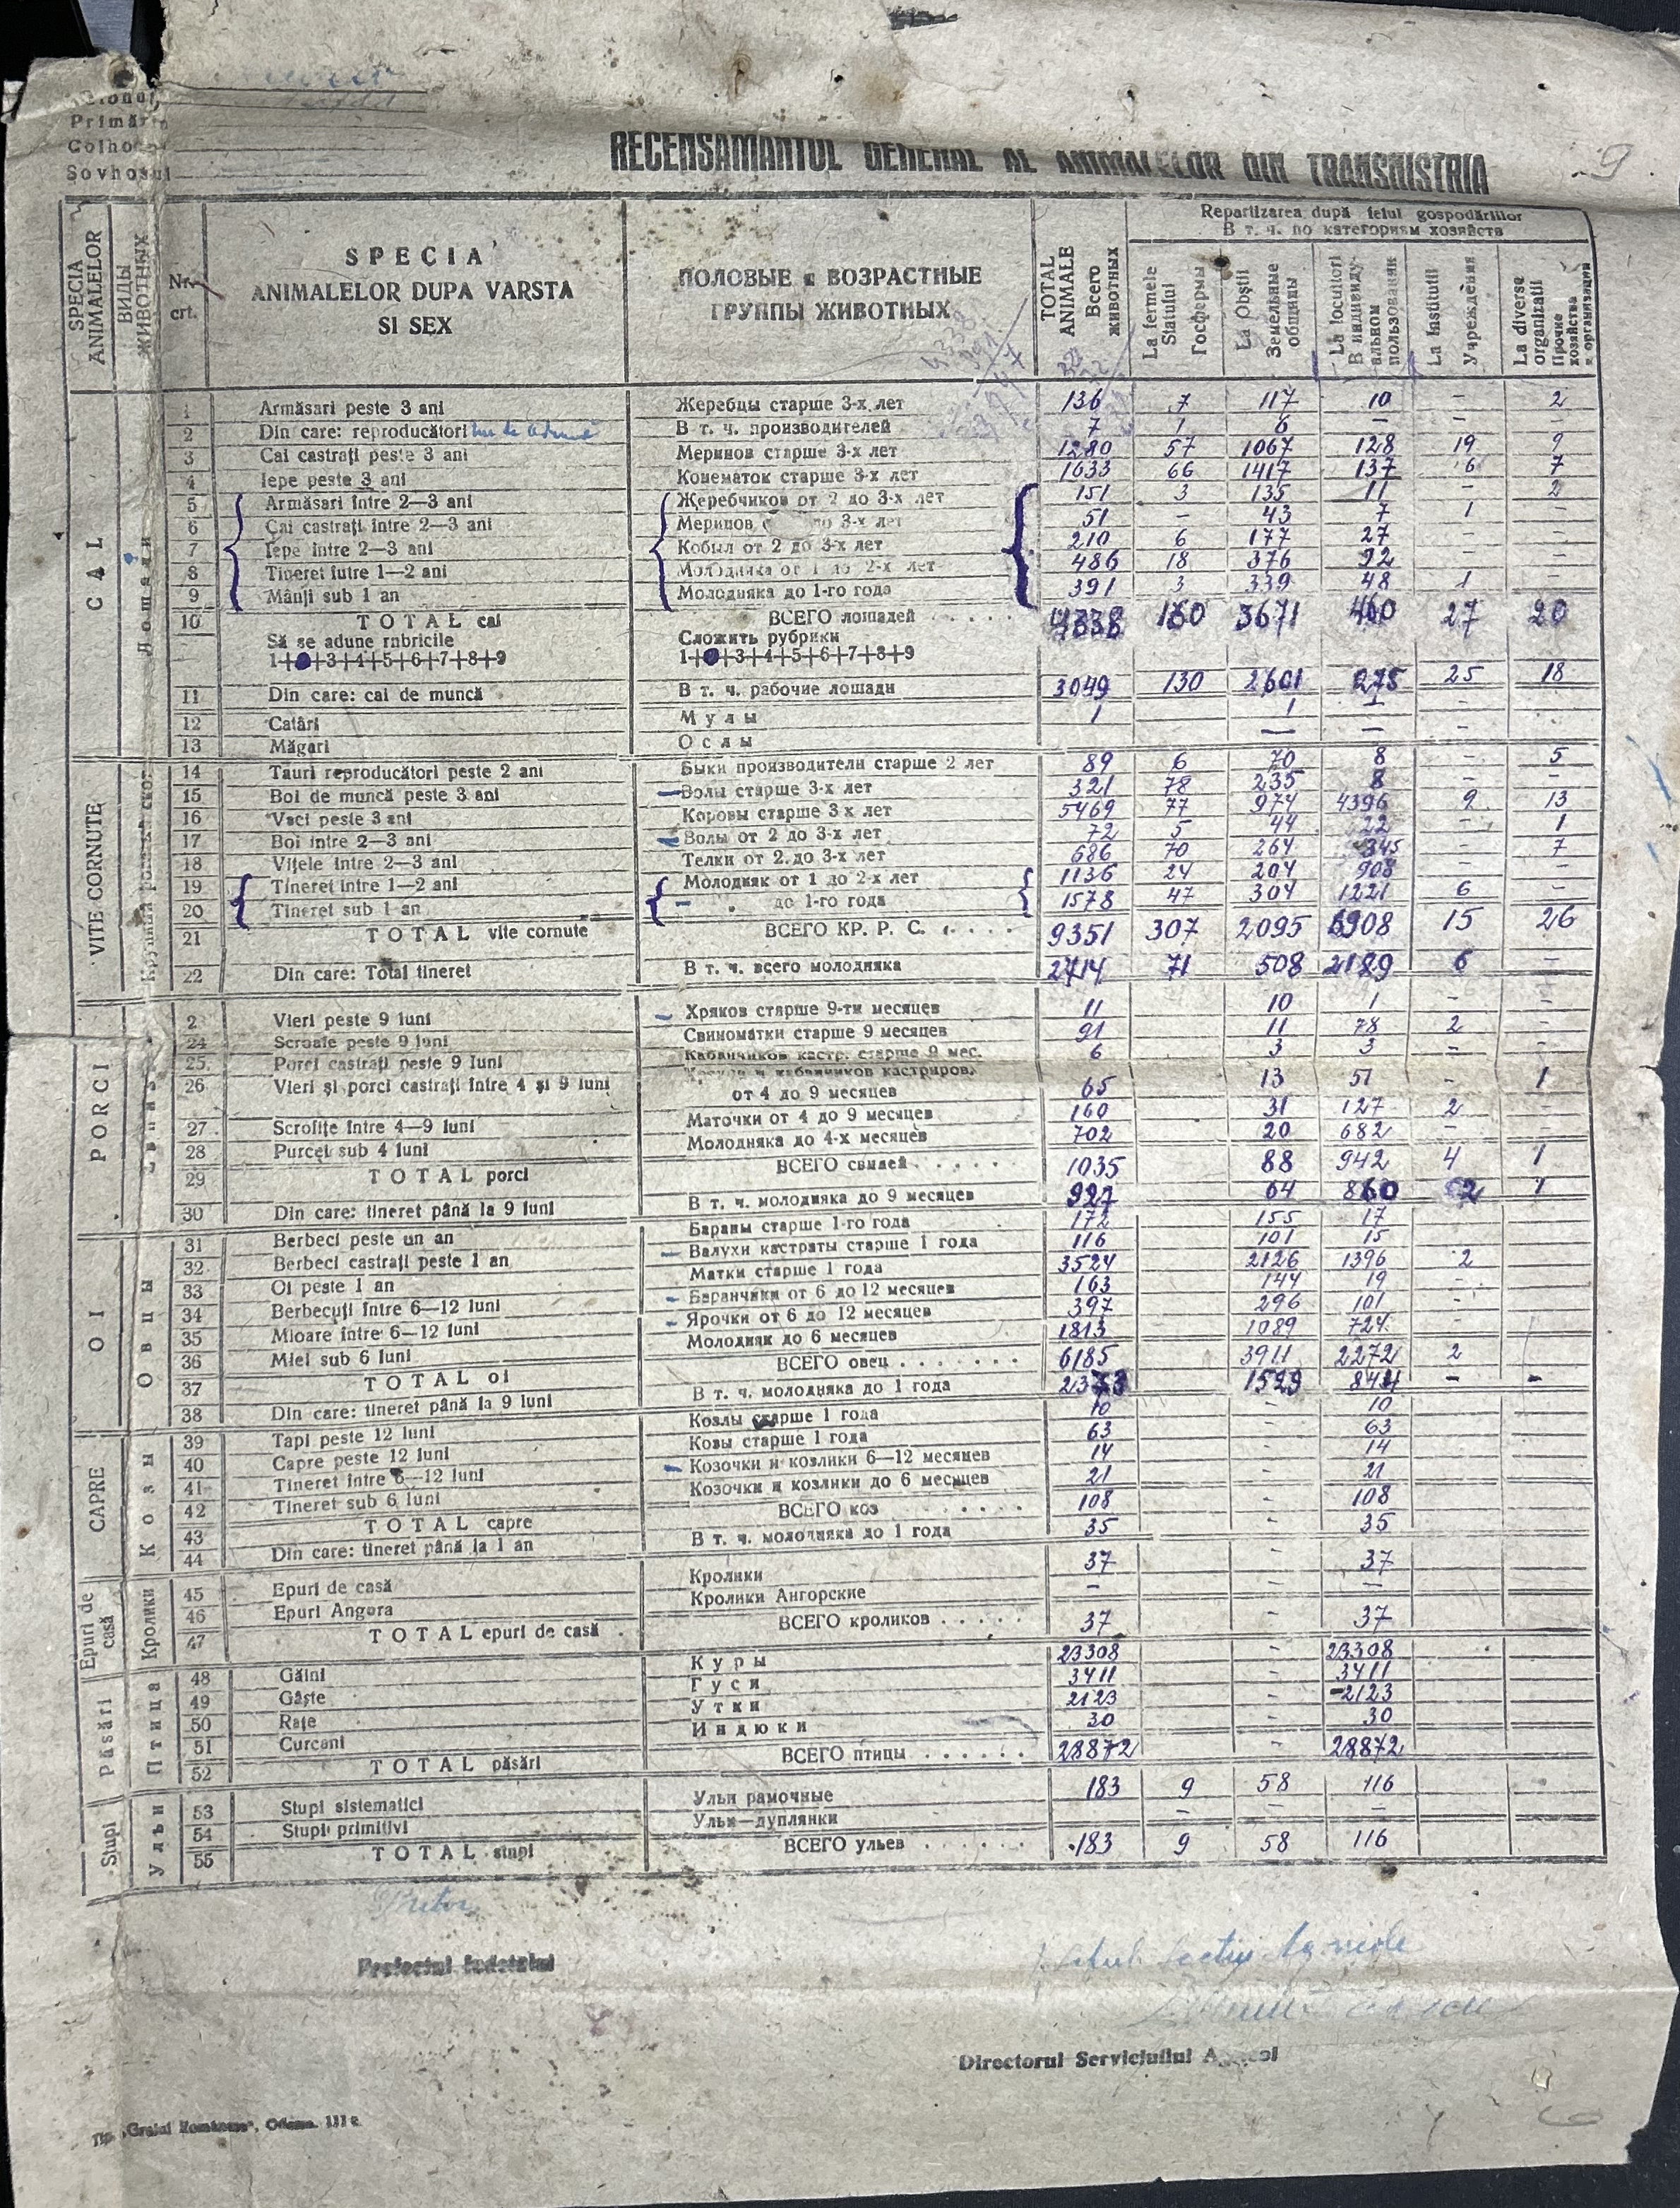 Primăr
Colho
Sovhosul
RECENSAMANTUL GENERAL AL ANIMALELOR DIN TRANSNISTRIA 9
SPECIA ANIMALELOR ВИДЫ ЖИВОТНЫХ Nr. crt. SPECIA ANIMALELOR DUPA VARSTA SI SEX ПОЛОВЫЕ и ВОЗРАСТНЫЕ ГРУППЫ ЖИВОТНЫХ TOTAL ANIMALE Всего животных
Repartizarea după felul gospodăriilor
В т. ч. по категориям хозяйств
La fermele Statului Госфермы La Obștii Земельные общины La locuitori В индивидуальном пользовании La Institutii Учреждения La diverse organizatii Прочие хозяйства и организации
CAL Лошади
1 Armăsari peste 3 ani Жеребцы старше 3-х лет 136 7 117 10 - 2
2 Din care: reproducători В т. ч. производителей 7 1 6 - - -
3 Cai castrați peste 3 ani Меринов старше 3-х лет 1280 57 1067 128 19 9
4 Iepe peste 3 ani Конематок старше 3-х лет 1633 66 1417 137 6 7
5 Armăsari între 2—3 ani Жеребчиков от 2 до 3-х лет 151 3 135 11 - 2
6 Cai castrați între 2—3 ani Меринов до 3-х лет 51 - 43 7 1 -
7 Iepe între 2—3 ani Кобыл от 2 до 3-х лет 210 6 177 27 - -
8 Tineret între 1—2 ani Молодняка от 1 до 2-х лет 486 18 376 92 - -
9 Mânji sub 1 an Молодняка до 1-го года 391 3 339 48 1 -
10 TOTAL cai ВСЕГО лошадей . . . . 4338 160 3671 460 27 20
Să se adune rnbricile Сложить рубрики
1+2+3+4+5+6+7+8+9 1+2+3+4+5+6+7+8+9
11 Din care: cai de muncă В т. ч. рабочие лошади 3049 130 2601 275 25 18
12 Catâri Мулы 1 1 - -
13 Măgari Ослы — — -
VITE CORNUTE
14 Tauri reproducători peste 2 ani Быки производители старше 2 лет 89 6 70 8 - 5
15 Boi de muncă peste 3 ani Волы старше 3-х лет 321 78 235 8 - -
16 Vaci peste 3 ani Коровы старше 3 х лет 5469 77 974 4396 9 13
17 Boi între 2—3 ani Волы от 2 до 3-х лет 72 5 44 22 - 1
18 Vițele între 2—3 ani Телки от 2 до 3-х лет 686 70 264 345 - 7
19 Tineret între 1—2 ani Молодняк от 1 до 2-х лет 1136 24 204 908 - -
20 Tineret sub 1 an до 1-го года 1578 47 304 1221 6 -
21 TOTAL vite cornute ВСЕГО КР. Р. С. . . . . 9351 307 2095 6908 15 26
22 Din care: Total tineret В т. ч. всего молодняка 2714 71 508 2129 6 -
PORCI
2 Vieri peste 9 luni Хряков старше 9-ти месяцев 11 10 1 - -
24 Scroafe peste 9 luni Свиноматки старше 9 месяцев 91 11 78 2 -
25 Porci castrați peste 9 luni Кабанчиков кастр. старше 9 мес. 6 3 3 - -
26 Vieri și porci castrați între 4 și 9 luni Хряков и кабанчиков кастриров.
от 4 до 9 месяцев 65 13 51 - 1
27 Scrofițe între 4—9 luni Маточки от 4 до 9 месяцев 160 31 127 2 -
28 Purcei sub 4 luni Молодняка до 4-х месяцев 702 20 682 - -
29 TOTAL porci ВСЕГО свиней . . . . . 1035 88 942 4 1
30 Din care: tineret până la 9 luni В т. ч. молодняка до 9 месяцев 927 64 860 2 1
OI Овцы
31 Berbeci peste un an Бараны старше 1-го года 172 155 17
32 Berbeci castrați peste 1 an Валухи кастраты старше 1 года 116 101 15
33 Oi peste 1 an Матки старше 1 года 3524 2126 1396 2
34 Berbecuți între 6—12 luni Баранчики от 6 до 12 месяцев 163 144 19 -
35 Mioare între 6—12 luni Ярочки от 6 до 12 месяцев 397 296 101 -
36 Miei sub 6 luni Молодняк до 6 месяцев 1813 1089 724 -
37 TOTAL oi ВСЕГО овец . . . . . . . 6185 3911 2272 2
38 Din care: tineret până la 9 luni В т. ч. молодняка до 1 года 2373 1529 844 - -
CAPRE Козы
39 Tapi peste 12 luni Козлы старше 1 года 10 - 10
40 Capre peste 12 luni Козы старше 1 года 63 - 63
41 Tineret între 6—12 luni Козочки и козлики 6—12 месяцев 14 - 14
42 Tineret sub 6 luni Козочки и козлики до 6 месяцев 21 - 21
43 TOTAL capre ВСЕГО коз . . . . . 108 - 108
44 Din care: tineret până la 1 an В т. ч. молодняка до 1 года 35 - 35
Epuri de casă Кролики
45 Epuri de casă Кролики 37 - 37
46 Epuri Angora Кролики Ангорские - - -
47 TOTAL epuri de casă ВСЕГО кроликов . . . . . 37 - 37
Păsări Птица
48 Găini Куры 23308 - 23308
49 Gâște Гуси 3411 - 3411
50 Rațe Утки 2123 - 2123
51 Curcani Индюки 30 - 30
52 TOTAL păsări ВСЕГО птицы . . . . . . 28872 - 28872
Stupi Ульи
53 Stupi sistematici Ульи рамочные 183 9 58 116
54 Stupi primitivi Ульи—дуплянки - - -
55 TOTAL stupi ВСЕГО ульев . . . . . . 183 9 58 116
Pretor
Prefectul Judetului
Directorul Serviciului A
Tip. „Graiul Românesc“, Odesa.